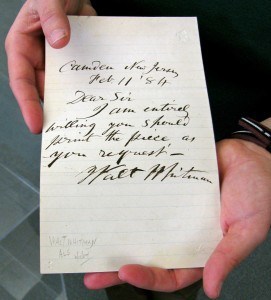 Camden New Jersey
Feb 11 '84
Dear Sir
I am entirely
willing you should
print the piece as
you request —
Walt Whitman
WALT WHITMAN